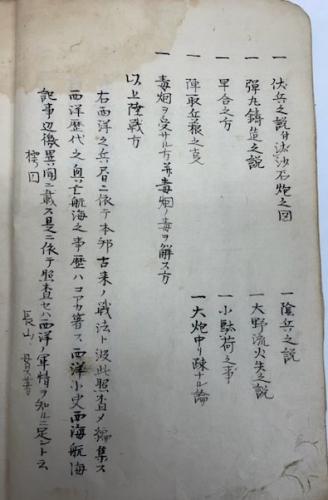 一 伏兵之説付法沙石炮之図
一 陰兵之説
一 弾丸鋳造之説
一 大野流火矢之説
一 早合之方
一 小駄荷之事
一 陣取兵粮之支
一 大炮中リ疎ナル論
一 毒烟ヲ受サル方并毒烟ノ毒ヲ解ス方
以上陸戦方
右西洋之兵書ニ依テ本邦古来ノ戦法ト彼此照査メ編集ス
西洋歴代之興亡航海之事歴ハコアカ著ス西洋小史西海航海
記事辺徼異聞ニ載ス是ニ依テ照査セハ西洋ノ軍情ヲ知ルニ足ント云
長山